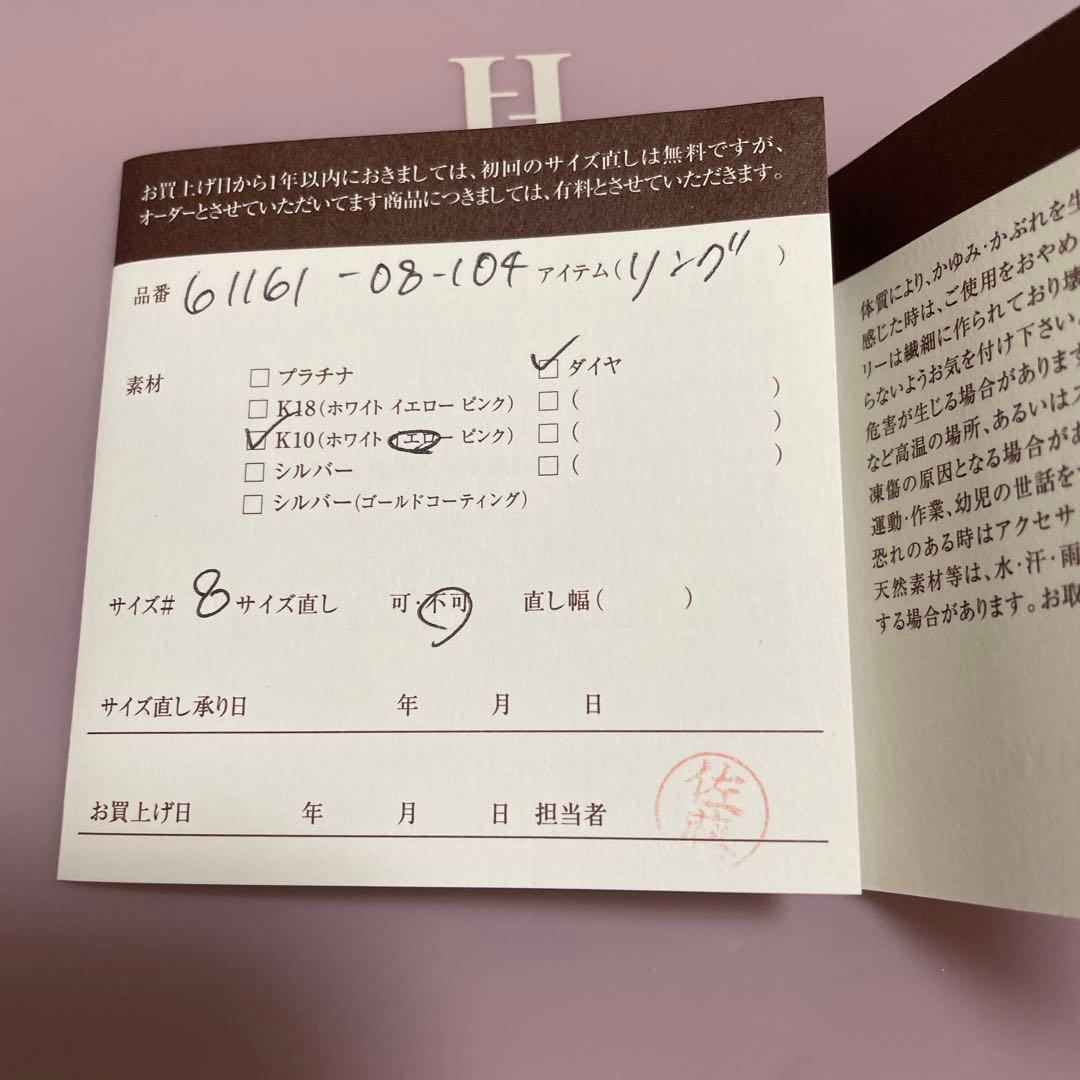 H
お買上げ日から1年以内におきましては、初回のサイズ直しは無料ですが、
オーダーとさせていただいてます商品につきましては、有料とさせていただきます。
品番 61161-08-104 アイテム(リング)
素材 □ プラチナ ☑ ダイヤ
□ K18(ホワイト イエロー ピンク) □ ( )
☑ K10(ホワイト イエロー ピンク) □ ( )
□ シルバー □ ( )
□ シルバー(ゴールドコーティング)
サイズ# 8 サイズ直し 可・不可 直し幅( )
サイズ直し承り日 年 月 日
お買上げ日 年 月 日 担当者 佐藤
体質により、かゆみ・かぶれを生
感じた時は、ご使用をおやめ
リーは繊細に作られており壊
らないようお気を付け下さい。
危害が生じる場合があります
など高温の場所、あるいはス
凍傷の原因となる場合があ
運動・作業、幼児の世話を
恐れのある時はアクセサ
天然素材等は、水・汗・雨
する場合があります。お取